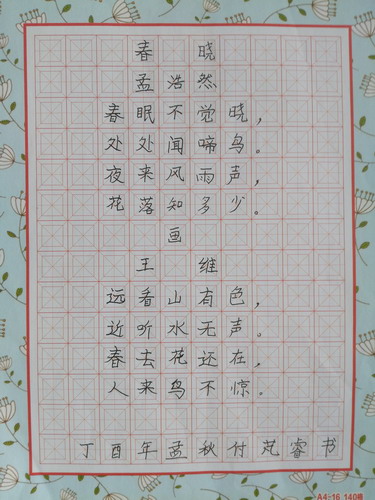 春晓
孟浩然
春眠不觉晓，
处处闻啼鸟。
夜来风雨声，
花落知多少。
画
王维
远看山有色，
近听水无声。
春去花还在，
人来鸟不惊。
丁酉年孟秋付芃睿书
A4-16 140格